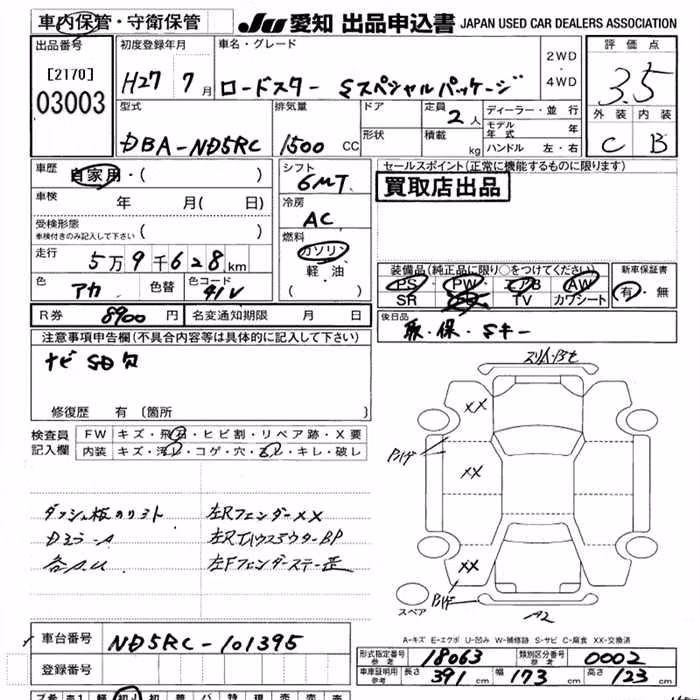 車内保管・守衛保管
JU 愛知 出品申込書 JAPAN USED CAR DEALERS ASSOCIATION
出品番号 初度登録年月 車名・グレード 2WD・4WD 評価点
[2170]
03003
H27 7月 ロードスター Sスペシャルパッケージ 3.5
型式 排気量 ドア 定員 2人 ディーラー・並行 外装 内装
形状 積載 kg モデル年式 年
DBA-ND5RC 1500 CC ハンドル 左・右 C B
車歴 自家用・( ) シフト 6MT セールスポイント(正常に機能するものに限ります)
買取店出品
車検 年 月( 日) 冷房 AC
受検形態
車検付きのみ記入して下さい ( )
燃料 ガソリン 軽・油 ( )
走行 5万9千628km
装備品(純正品に限り○をつけてください) 新車保証書
PS PW エアB AW 有・無
SR TV カワシート
色 アカ 色替 色コード 41V
R券 8900円 名変通知期限 月 日
後日品
取・保・Sキー
注意事項申告欄(不具合内容等は具体的に記入して下さい)
ナビSD欠
スリムバンモ
修復歴 有(箇所 )
検査員記入欄 FW キズ・飛石・ヒビ割・リペア跡・X要
内装 キズ・汚レ・コゲ・穴・スレ・キレ・破レ
XX
XX
XX
左RフェンダーXX
左RTハウスアウターBP
左Fフェンダーステー歪
スペア
A2
A-キズ E-エクボ U-凹み W-補修跡 S-サビ C-腐食 XX-交換済
車台番号 ND5RC-101395
登録番号
形式指定番号 参考 18063 類別区分番号 参考 0002
車庫証明用 参考 長さ 391 幅 173 高さ 123 cm